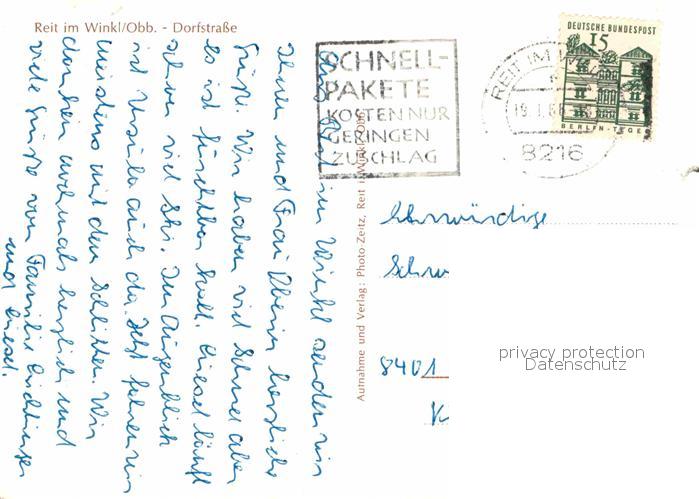 Reit im Winkl/Obb. - Dorfstraße
Aus Reit im Winkl senden wir
Ihnen und Frau Oberin herzliche
Grüße. Wir haben viel Schnee aber
es ist fürchtbar kalt. Liesel läuft
schon viel Ski. Im Augenblick
ist Ursula auch da. Jetzt fahren wir
meistens mit dem Schlitten. Wir
danken nochmals herzlich und
viele Grüße von Familie
und Liesel.
Aufnahme und Verlag: Photo-Zeitz, Reit i. Winkl/Obb.
SCHNELL-
PAKETE
KOSTEN NUR
GERINGEN
ZUSCHLAG
REIT IM WINKL
8216
DEUTSCHE BUNDESPOST
15
BERLIN-TEGEL
Ehrwürdige
Schw
8401
K
privacy protection
Datenschutz